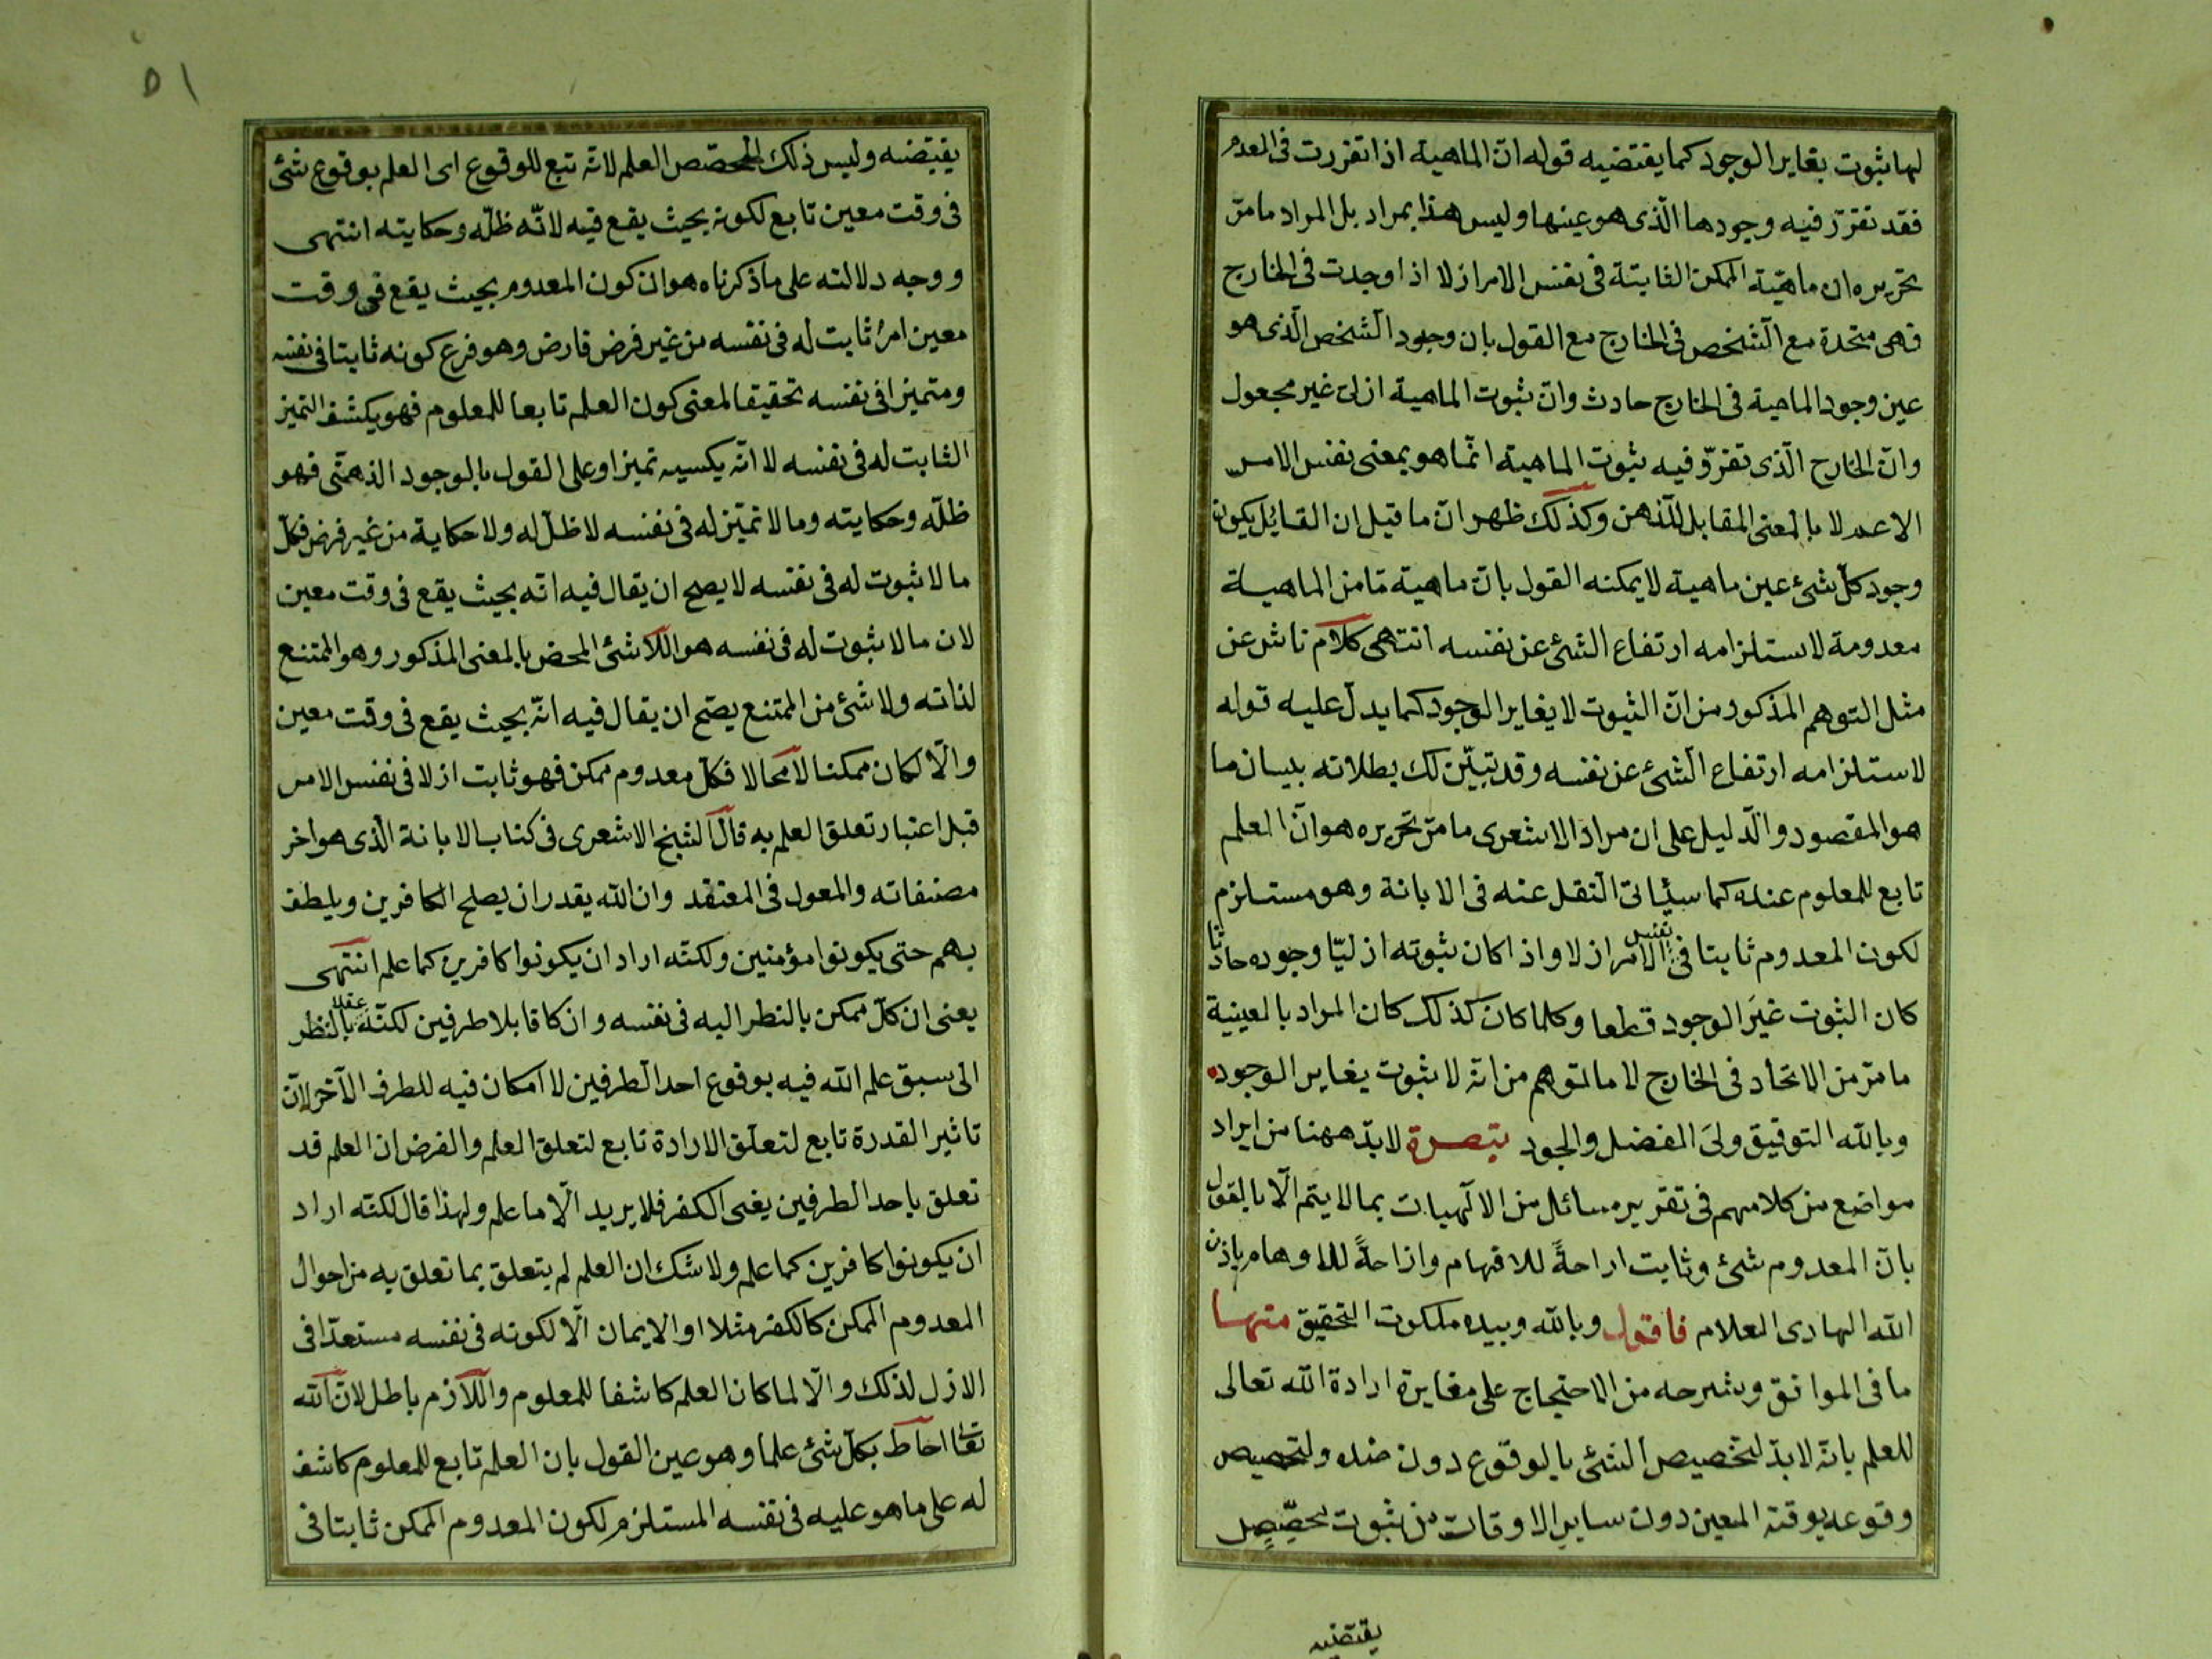 لها ثبوت يغاير الوجود كما يقتضيه قوله ان الماهية اذا تقررت فى العدم
فقد تقرر فيه وجودها الّذى هو عينها وليس هذا بمراد بل المراد ما مرّ
تحريره ان ماهيّة الممكن الثابتة فى نفس الامر ازلا اذا وجدت فى الخارج
فهى متحدة مع الشخص فى الخارج مع القول بان وجود الشخص الّذى هو
عين وجود الماهية فى الخارج حادث وانّ ثبوت الماهية ازلى غير مجعول
وانّ الخارج الّذى تقررّ فيه ثبوت الماهية انّما هو بمعنى نفس الامر
الاعم لا بالمعنى المقابل للذهن وكذلك ظهر انّ ما قيل ان القائل بكون
وجود كلّ شئ عين ماهية لا يمكنه القول بانّ ماهية مّا من الماهية
معدومة لاستلزامه ارتفاع الشئ عن نفسه انتهى كلام ناش عن
مثل التوهم المذكور من انّ الثبوت لا يغاير الوجود كما يدلّ عليه قوله
لاستلزامه ارتفاع الشئ عن نفسه وقد تبيّن لك بطلانه ببيان ما
هو المقصود والدّليل على ان مراد الاشعرى ما مرّ تحريره هو انّ العلم
تابع للمعلوم عنده كما سيأتى النقل عنه فى الابانة وهو مستلزم
لكون المعدوم ثابتا فى نفس الامر ازلا واذا كان ثبوته ازليّا وجوده حادثا
كان الثبوت غيَر الوجود قطعا وكلما كان كذلك كان المراد بالعينية
ما مرّ من الاتحاد فى الخارج لا ما لتوهم من انّه لا ثبوت يغاير الوجود
وبالله التوفيق ولىّ الفضل والجود تبصرة لابدّ ههنا من ايراد
مواضع من كلامهم فى تقرير مسائل من الالهيات بما لا يتم الّا بالقول
بانّ المعدوم شئ وثابت اراحةً للافهام وازاحةً للاوهام باذن
الله الهادى العلام فاقول وبالله وبيده ملكوت التحقيق منها
ما فى المواقف وشرحه من الاحتجاج على مغايرة ارادة الله تعالى
للعلم بانّه لابدّ لتخصيص الشئ بالوقوع دون ضده ولتخصيص
وقوعه بوقته المعين دون ساير الاوقات من ثبوت مخصّص
يقتضيه
٥١
يقتضيه وليس ذلك المخصّص العلم لانّه تبع للوقوع اى العلم بوقوع شئ
فى وقت معين تابع لكونه بحيث يقع فيه لانّه ظلّه وحكايته انتهى
ووجه دلالته على ما ذكرناه هو ان كون المعدوم بحيث يقع فى وقت
معين امرٌ ثابت له فى نفسه من غير فرض فارض وهو فرع كونه ثابتا فى نفسه
ومتميزا فى نفسه تحقيقا لمعنى كون العلم تابعا للمعلوم فهو يكشف التميز
الثابت له فى نفسه لا انّه يكسبه تميزا وعلى القول بالوجود الذهنّى فهو
ظلّه وحكايته وما لا تميّز له فى نفسه لا ظلّ له ولا حكاية من غير فرض فكلّ
ما لا ثبوت له فى نفسه لا يصح ان يقال فيه انّه بحيث يقع فى وقت معين
لان ما لا ثبوت له فى نفسه هو اللّاشئ المحض بالمعنى المذكور وهو الممتنع
لذاته ولا شئ من الممتنع يصّح ان يقال فيه انّه بحيث يقع فى وقت معين
والّا لكان ممكنا لا محالا فكلّ معدوم ممكن فهو ثابت ازلا فى نفس الامر
قبل اعتبار تعلق العلم به قال الشيخ الاشعرى فى كتاب الابانة الّذى هو اخر
مصنفاته والمعول فى المعتقد وان الله يقدر ان يصلح الكافرين ويلطف
بهم حتى يكونوا مؤمنين ولكنّه اراد ان يكونوا كافرين كما علم انتهى
يعنى ان كلّ ممكن بالنظر اليه فى نفسه وان كا قابلا طرفين لكنّه عقلا بالنظر
الى سبق علم الله فيه بوقوع احد الطرفين لا امكان فيه للطرف الآخر لانّ
تاثير القدرة تابع لتعلّق الارادة تابع لتعلق العلم والفرض ان العلم قد
تعلق باحد الطرفين يغنى الكفر فلا يريد الّا ما علم ولهذا قال لكنّه اراد
ان يكونوا كافرين كما علم ولا شك ان العلم لم يتعلق بما تعلق به من احوال
المعدوم الممكن كالكفر مثلا او الايمان الّا لكونه فى نفسه مستعدّا فى
الازل لذلك والّا لما كان العلم كاشفا للمعلوم واللّازم باطل لانّ الله
تعا احاط بكلّ شئ علما وهو عين القول بان العلم تابع للمعلوم كاشف
له على ما هو عليه فى نفسه المستلزم لكون المعدوم الممكن ثابتا فى